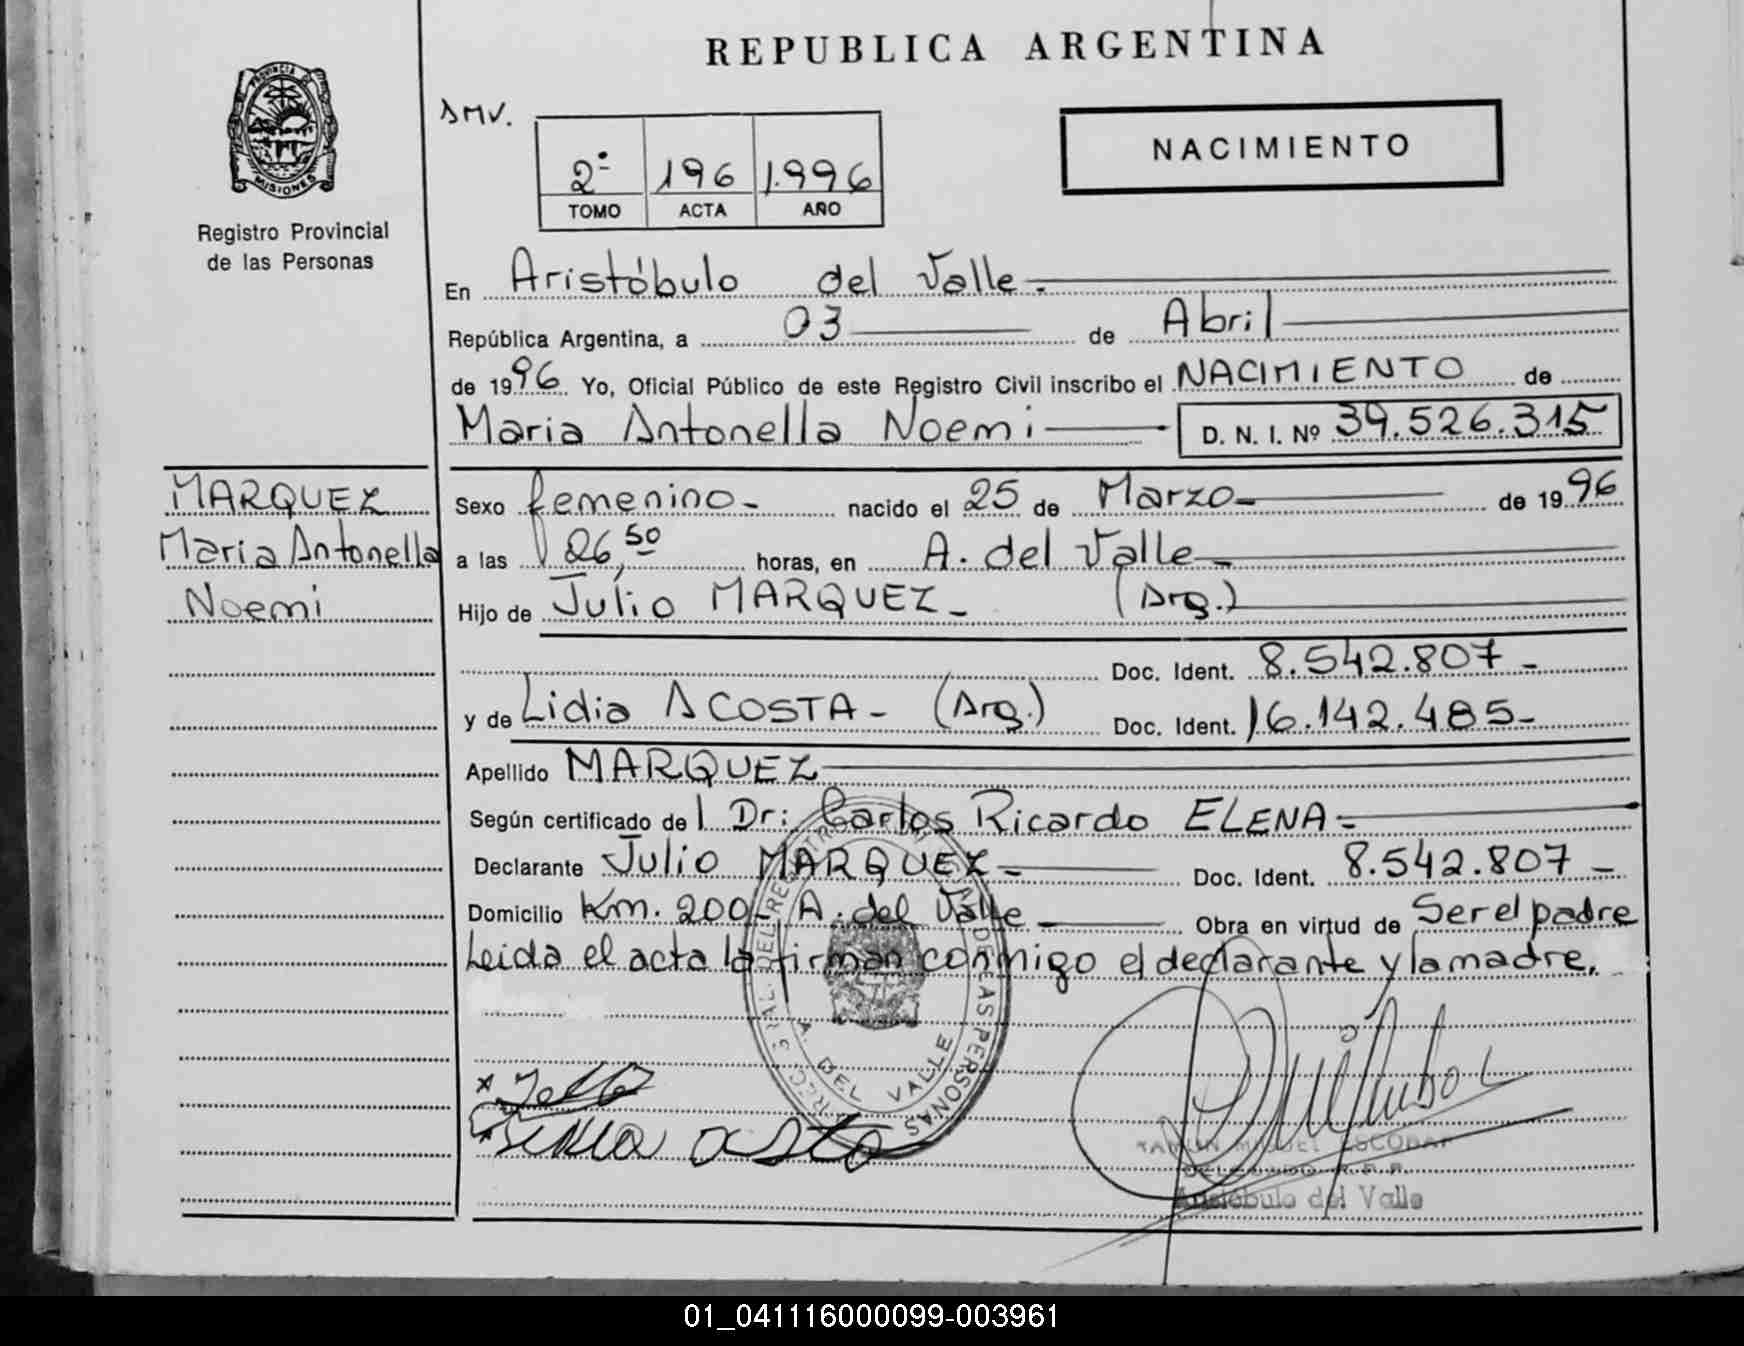 REPUBLICA ARGENTINA
PROVINCIA DE
MISIONES
Registro Provincial
de las Personas
AMV.
2º 196 1.996
TOMO ACTA AÑO
NACIMIENTO
En Aristóbulo del Valle.
República Argentina, a 03 de Abril
de 1996 Yo, Oficial Público de este Registro Civil inscribo el NACIMIENTO de
Maria Antonella Noemi D. N. I. Nº 39.526.315
MARQUEZ
Maria Antonella
Noemi
Sexo femenino- nacido el 25 de Marzo- de 1996
a las 06,50 horas, en A. del Valle-
Hijo de Julio MARQUEZ- (Arg.)
Doc. Ident. 8.542.807-
y de Lidia ACOSTA- (Arg.) Doc. Ident. 16.142.485-
Apellido MARQUEZ
Según certificado del Dr: Carlos Ricardo ELENA-
Declarante Julio MARQUEZ- Doc. Ident. 8.542.807-
Domicilio Km. 200- A. del Valle- Obra en virtud de Ser el padre
Leida el acta la firman conmigo el declarante y la madre.
DE LAS PERSONAS
A. DEL VALLE
RAMON MIGUEL ESCOBAR
DELEGADO R.P.P.
Aristóbulo del Valle
01_041116000099-003961